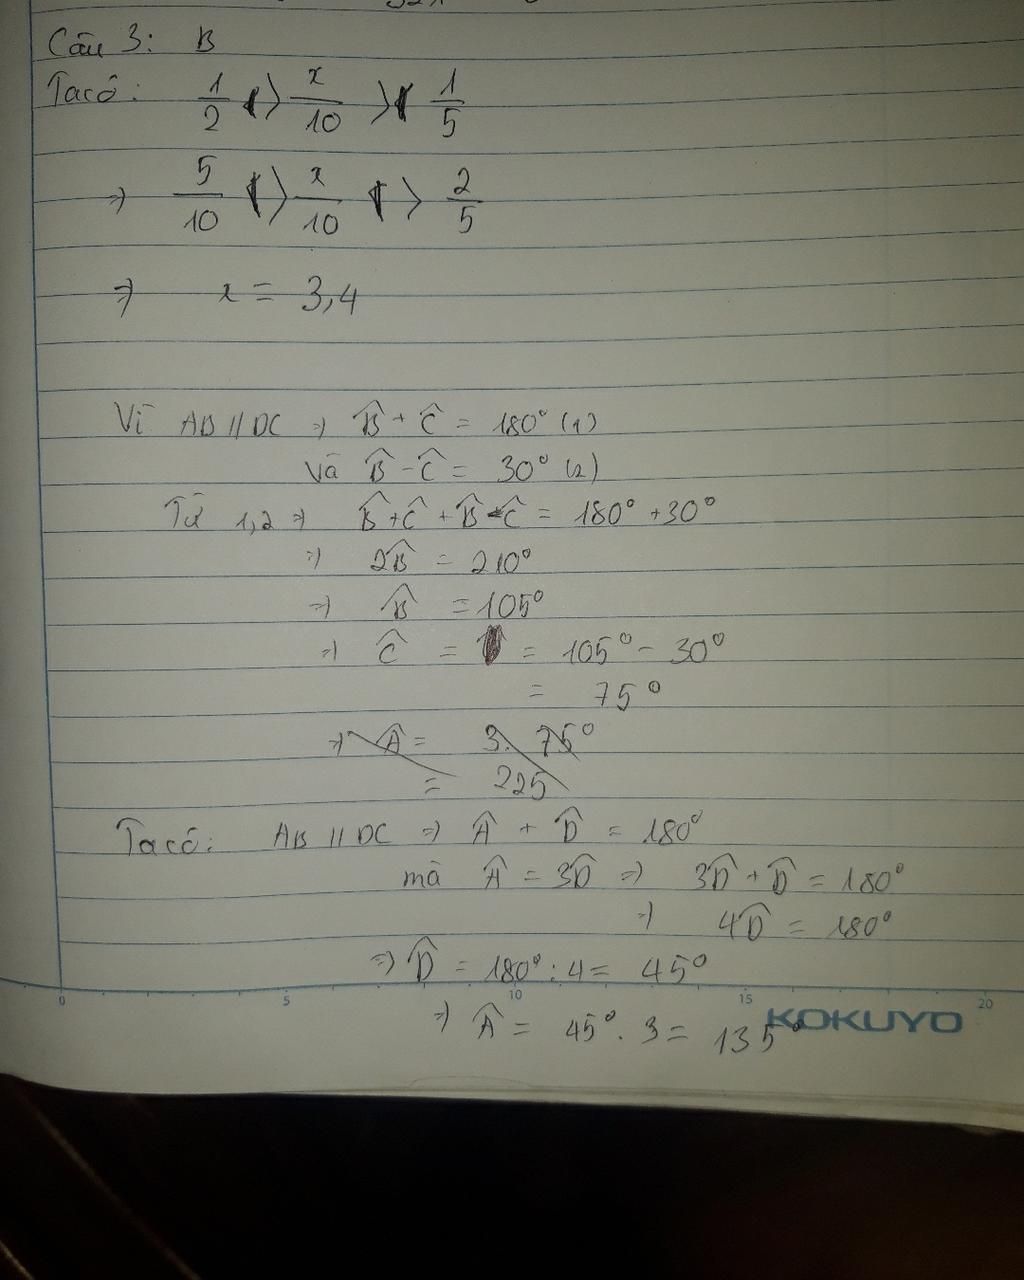 Câu 3: B
Ta có: 1/2 > x/10 > 1/5
=> 5/10 > x/10 > 2/5
=> x = 3,4
Vì AB // DC => B̂ + Ĉ = 180° (1)
và B̂ - Ĉ = 30° (2)
Từ 1,2 => B̂ + Ĉ + B̂ - Ĉ = 180° + 30°
=> 2B̂ = 210°
=> B̂ = 105°
=> Ĉ = = 105° - 30°
= 75°
=> Â = 3. 75°
= 225
Ta có: AB // DC => Â + D̂ = 180°
mà Â = 3D̂ => 3D̂ + D̂ = 180°
=> 4D̂ = 180°
=> D̂ = 180° : 4 = 45°
0 5 10 15 20
KOKUYO
=> Â = 45° . 3 = 135°